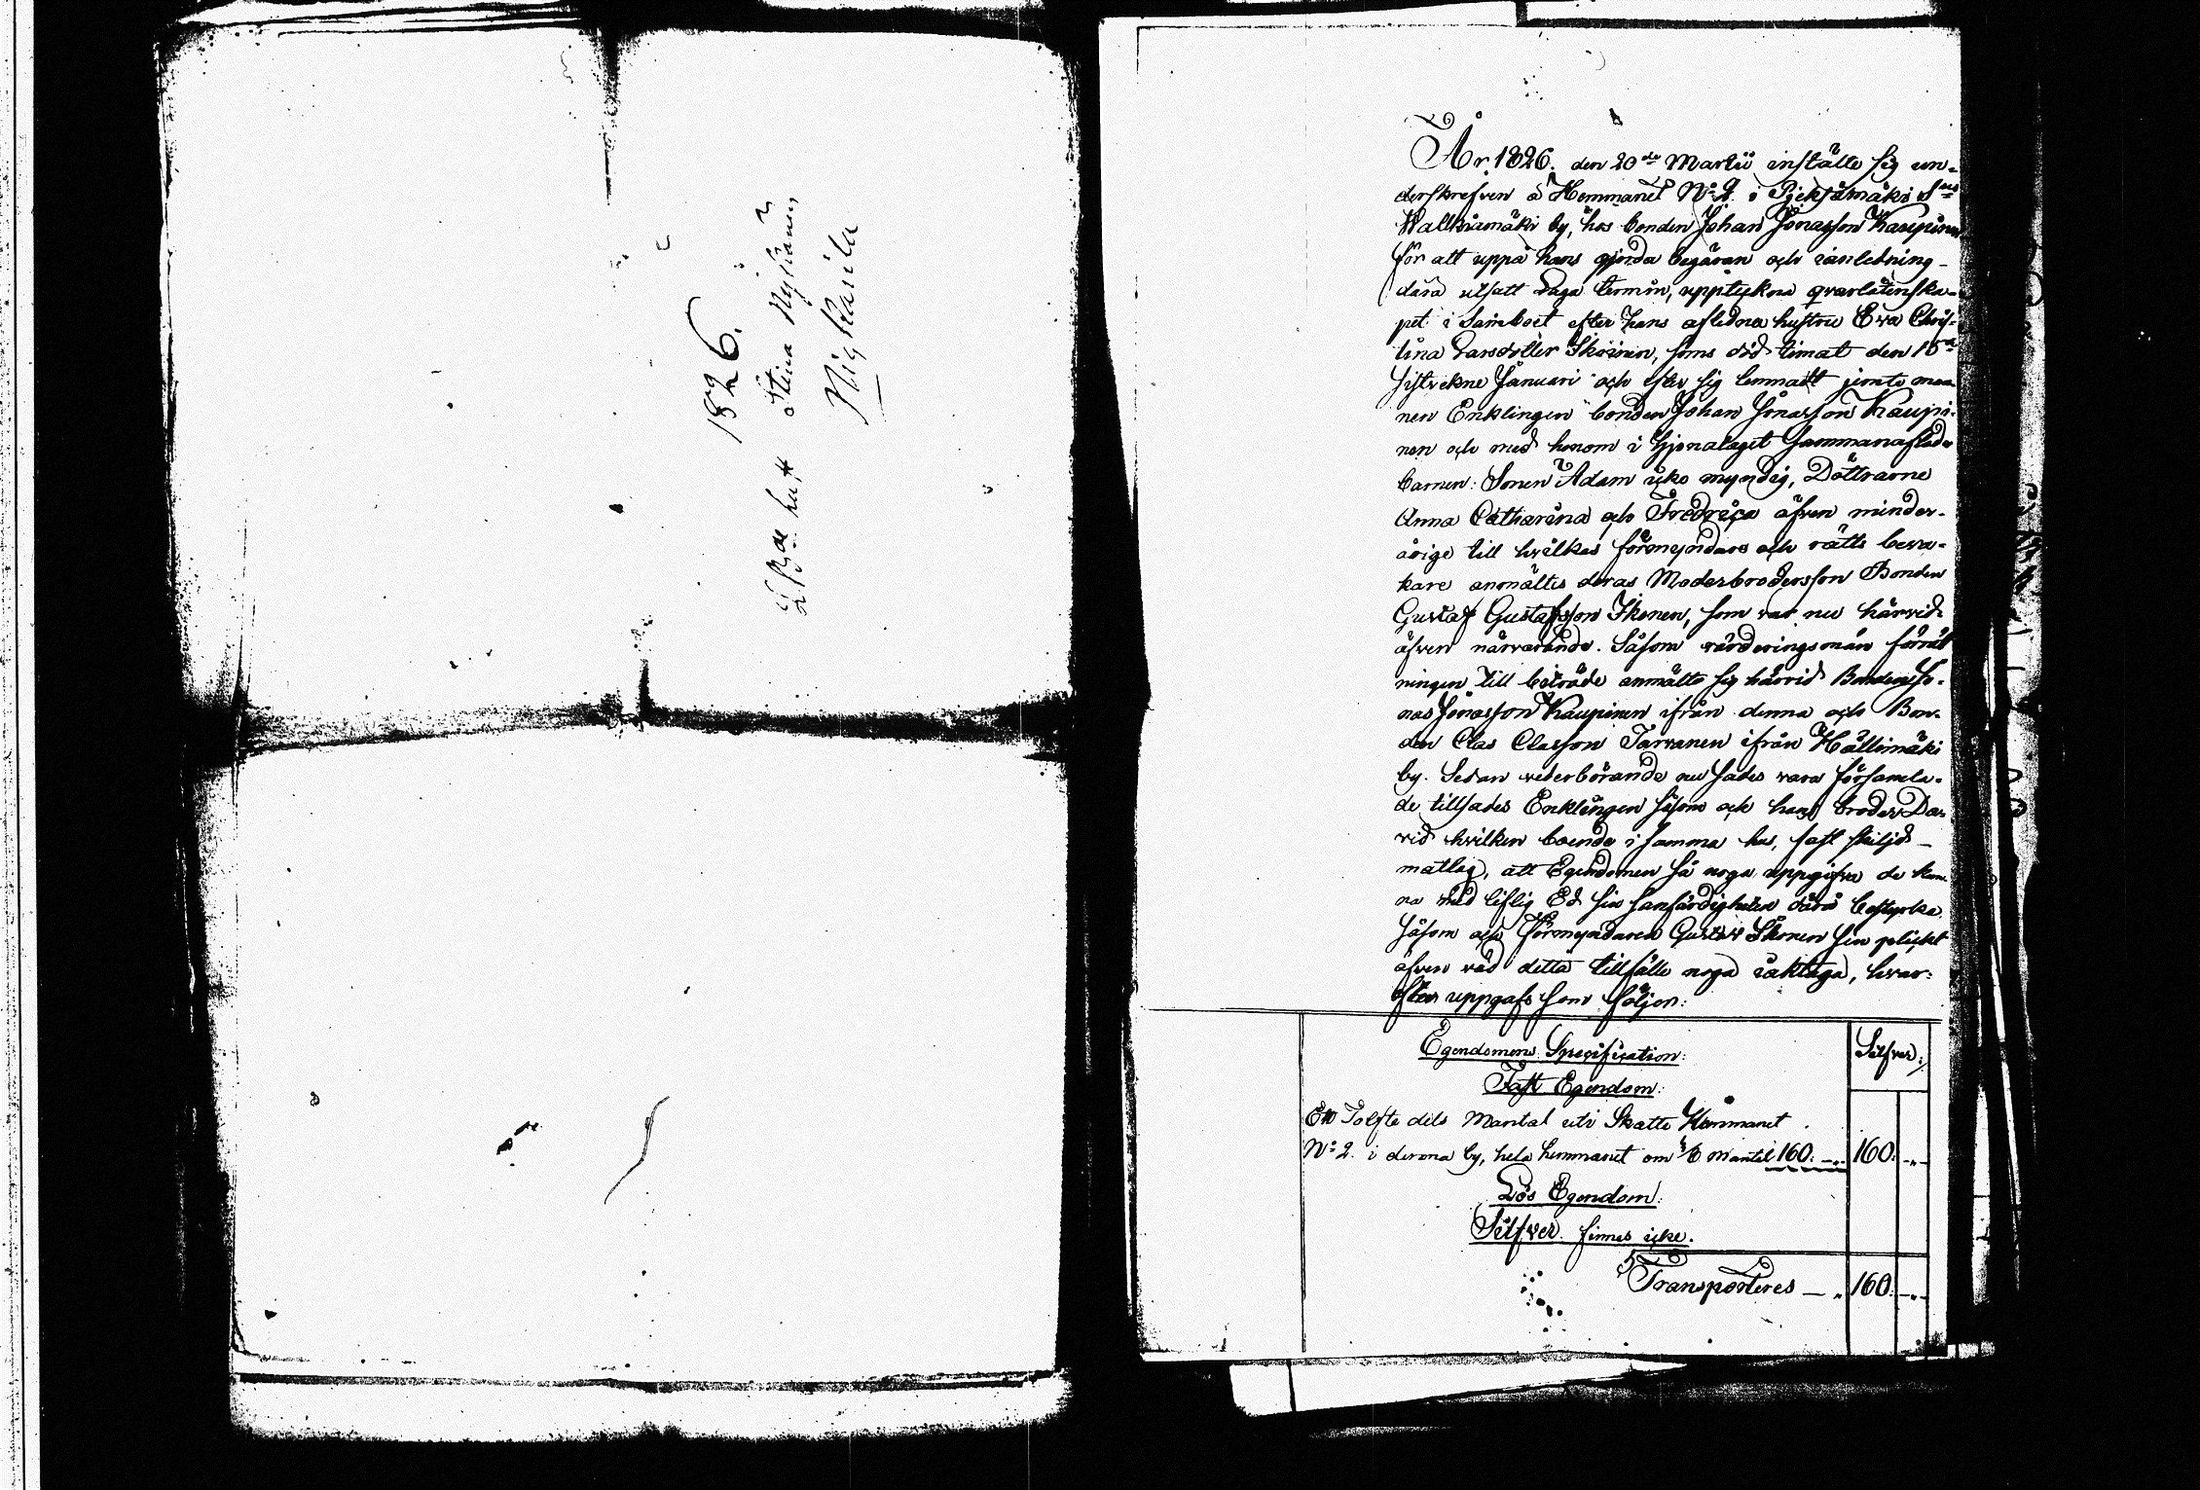 1826.
Stina Nykänen
Nighkaila
År 1826. den 20de Martii instälte sig un-
derskrefven å Hemmanet No 2. i Pjeksämäki Sns
Wallkiamäki by, hos bonden Johan Jonasson Kaupinen
för att uppå hans gjorda begäran och i anledning
däraf utsatt Laga termin, upptekna qvarlåtenska-
pet i Sämboet efter hans aflidna hustru Eva Chris-
tina Larsdotter Ikoinen, som död timat den 15de
sistvekne Januari och efter sig lemnadt jemte man-
nen Enklingen bonden Johan Jonasson Kaupi-
nen och med honom i Hjonalaget sammanaflade
barnen: Sonen Adam icke myndig, Döttrarne
Anna Catharina och Fredrica äfven minder-
årige till hvilkas förmyndare och rätts beva-
kare anmältes deras Moderbrodersson Bonden
Gustaf Gustafsson Ikonen, som var nu härvid
äfven närvarande. Såsom värderingsmän förrätt
ningen till biträde anmälte sig härvid Bonden Jo-
nas Jonasson Kaupinen ifrån denna och Bon-
den Clas Classon Tarvanen ifrån Hällimäki
by. Sedan vederbörande nu sades vara församla-
de tillsades Enklingen såsom och hans broder Da-
vid hvilken boende i samma hus, fast skiljd
matlag, att Egendomen så noga uppgifva de kun-
na med liflig Ed sin sanfärdigheten därå bestyrka
såsom och Förmyndaren Gustaf Ikonen sin plickt
äfven vid detta tillfälle noga iakttaga, hvar-
efter uppgafs som följer:
Egendomens Specification:
Silfver:
Fast Egendom:
En Tolfte dels Mantal uti Skatte Hemmanet
No 2. i denna by, hela hemmanet om 1/6 mantel 160. 160.
Lös Egendom:
Silfver finnes icke.
Transporteres 160.